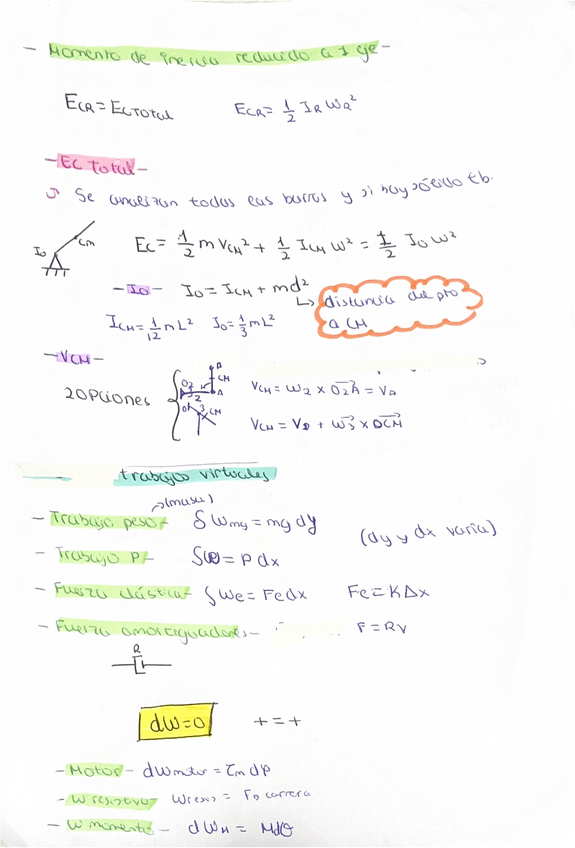 - Momento de inercia reducido a 1 eje -
ECR = EC TOTAL    ECR = 1/2 IR WR²
- EC total -
Se analizan todas las barras y si hay sólido tb.
Io    CM    Ec = 1/2 m VCM² + 1/2 ICM W² = 1/2 Io W²
- Io -    Io = ICM + md²
↳ distancia del pto a CM
ICM = 1/12 mL²    Io = 1/3 mL²
- VCM -
2 OPciones
O2    2    A    B    CM    VCM = W2 x O2A = VA
3    CM    VCM = VD + W3 x DCM
trabajos virtuales
→ (masa)
- Trabajo peso -    δWmg = mg dy    (dy y dx varía)
- Trabajo P -    δW = P dx
- Fuerza elástica -    δWe = Fe dx    Fe = KΔx
- Fuerza amortiguadores -    F = RV
R
dW = 0    + = +
- Motor -    dWmotor = τm dφ
- W resistivo    Wresis = FD carrera
- W momento -    dWM = Mdθ